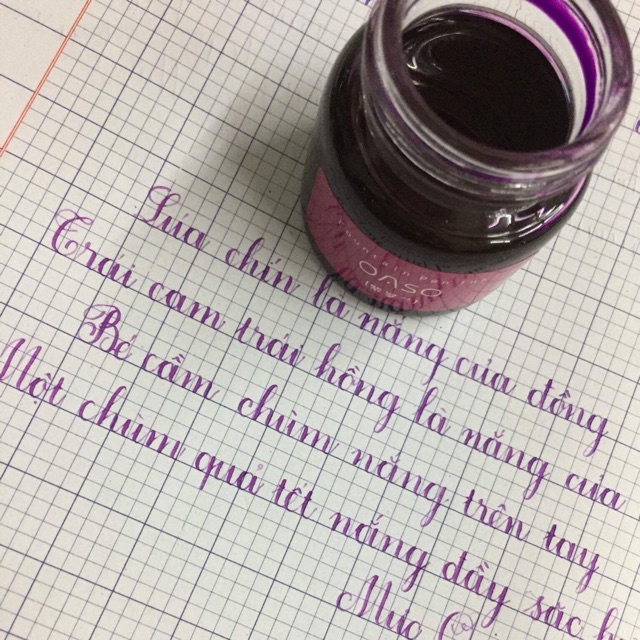 OASO
Lúa chín là nắng của đồng
Trái cam trái hồng là nắng của
Bé cầm chùm nắng trên tay
Một chùm quả tết nắng đầy sắc
Mực